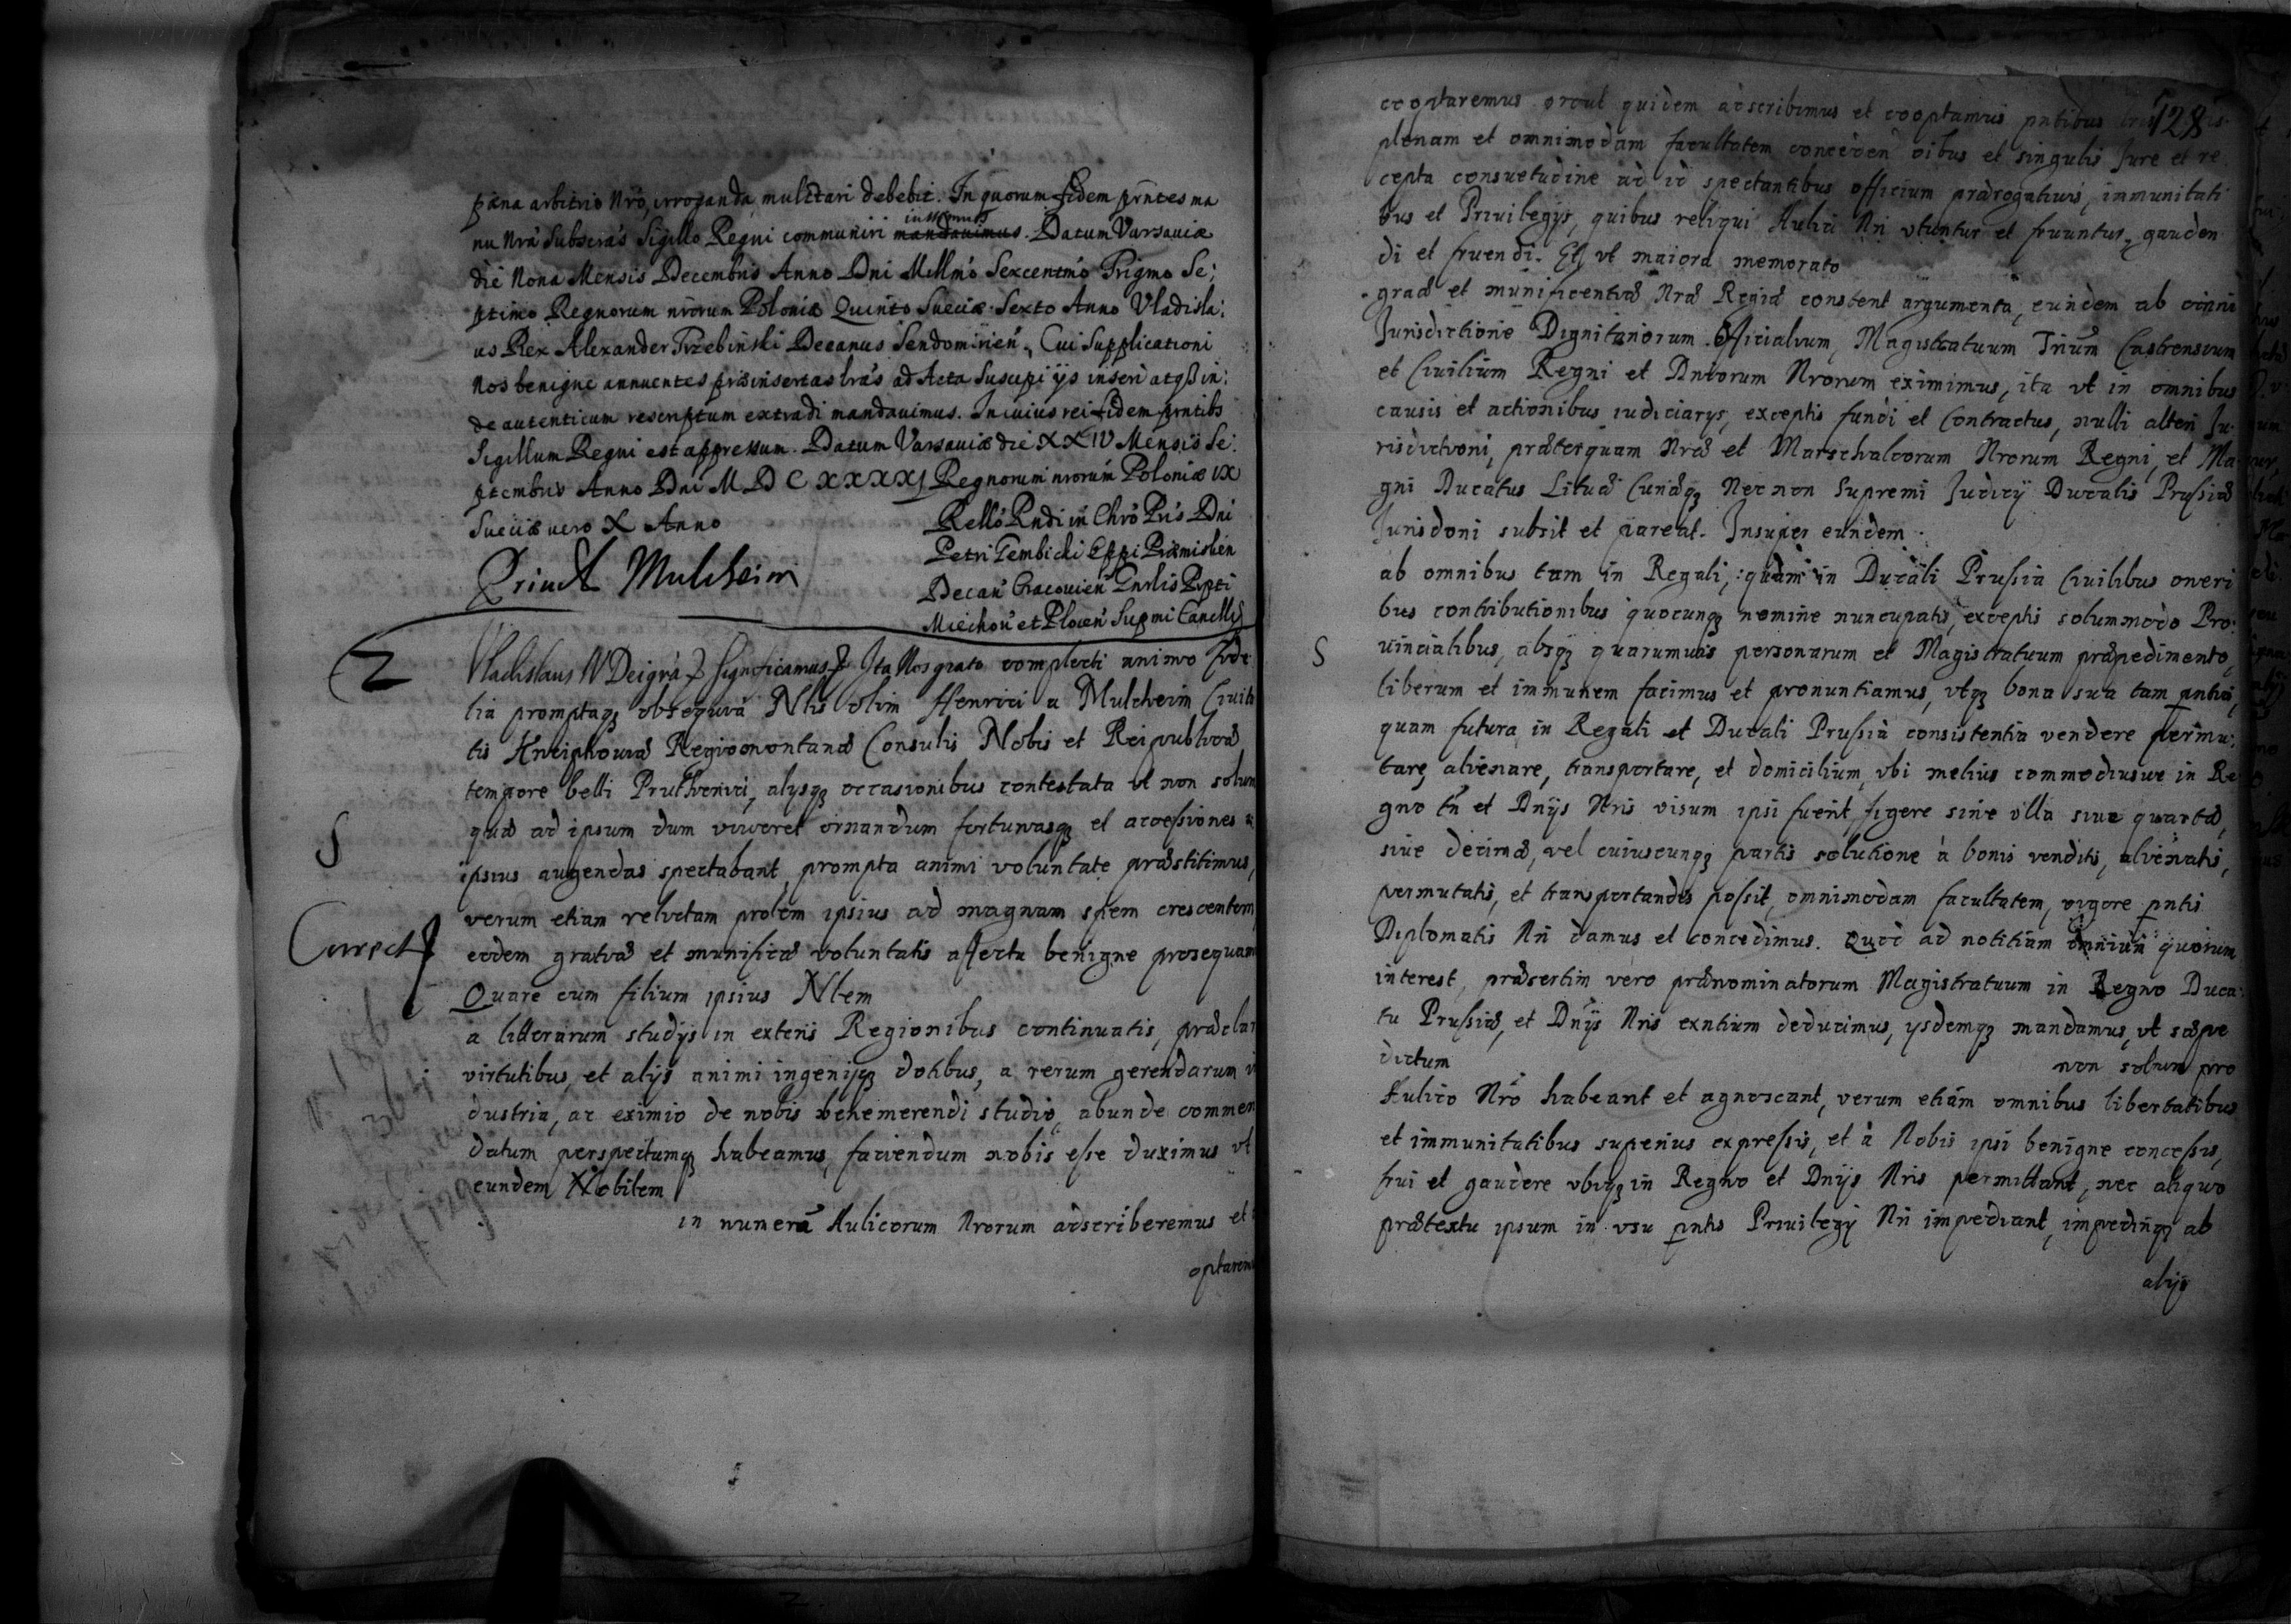 pæna arbitrio Nrō, irroganda mulctari debebit. In quorum fidem pr̄ntes ma
nu Nrā Subscrās Sigillo Regni communiri mandauimus iussimus. Datum Varsauiæ
die Nona Mensis Decembris Anno Dni Millmō Sexcentmō Trigmo Se:
ptimo Regnorum nrōrum Poloniæ Quinto Sueciæ Sexto Anno Vladisla:
us Rex Alexander Trzebinski Decanus Sendomirień. Cui Supplicationi
Nos benigne annuentes præinsertas lrās ad Acta Suscipi ijs inseri atqß in:
de autenticum rescriptum extradi mandauimus. In cuius rei fidem pr̄ntibs
Sigillum Regni est appressum. Datum Varsauiæ die XXIV Mensis Se:
ptembris Anno Dni M D C XXXXI Regnorum nrōrum Poloniæ IX
Sueciæ vero X Anno
Rellō Rndi in Chrō Pris Dni
Petri Gembicki Eppi Præmislień
Decań Cracouień Gnrlis Ppti
Miechoū et Plocen Supmi Cancllrij
Mulcheim
2
Vladislaus IV Dei grā Significamus Ita Nos grato complecti animo
lia promptaqȝ obsequia Nlis olim Henrici a Mulcheim Ciuita
tis Kneiphouiæ Regiomontanæ Consulis Nobis et Reipublicæ
tempore belli Pruthenici, alysqȝ occasionibus contestata vt non solum
quæ ad ipsum dum viueret ornandum fortunasqȝ et accessiones
S
ipsius augendas spectabant, prompta animi voluntate præstitimus,
verum etiam relictam prolem ipsius ad magnam spem crescentem
Correct
eodem gratiæ et munificæ voluntatis affectu benigne prosequam
Quare cum filium ipsius Nlem
a litterarum studijs in exteris Regionibus continuatis, præclar
virtutibus, et alijs animi ingenijqȝ dotibus, a rerum gerendarum
dustria, ac eximio de nobis benemerendi studio, abunde commen
datum perspectumqȝ habeamus, faciendum nobis esse duximus vt
eundem Nobilem
in numerū Aulicorum Nrorum adscriberemus et
optarem
128
cooptaremus prout quidem adscribimus et cooptamus pntibus
plenam et omnimodam facultatem conceden oibus et singulis Jure et re
cepta consuetudine ad id spectantibus officium prærogatiuis, immunitati
bus et Priuilegijs, quibus reliqui Aulici Nri vtuntur et fruuntur, gauden
di et fruendi. Et vt maiora memorato
graæ et munificentiæ Nræ Regiæ constent argumenta, eundem ab omni
Jurisdictione Dignitariorum Officialium, Magistratuum Castrensium
et Ciuilium Regni et Dniorum Nrorum eximimus, ita vt in omnibus
causis et actionibus iudiciarys, exceptis fundi et Contractus, nulli alteri Ju
risdictioni, præterquam Nræ et Marschalcorum Nrorum Regni, et Ma
gni Ducatus Lituæ Curiæqȝ Nec non Supremi Judicij Ducalis Prussiæ
Jurisdoni subsit et pareat. Insuper eundem
ab omnibus tam in Regali, quam in Ducali Prussia Ciuilibus oneri
bus contributionibus quocunqȝ nomine nuncupatis, exceptis solummodo Pro:
S
uincialibus, absqȝ quarumuis personarum et Magistratuum præpedimento,
liberum et immunem facimus et pronuntiamus, vtqȝ bona sua tam pntia,
quam futura in Regali et Ducali Prussia consistentia vendere permu:
tare, alienare, transportare, et domicilium, vbi melius commodiusue in Re
gno tn̄ et Dnijs Nris visum ipsi fuerit, figere sine vlla siue quartæ,
siue decimæ, vel cuiuscunqȝ partis solutione à bonis venditis, alienatis,
permutatis, et transportandis possit, omnimodam facultatem, vigore pntis
Diplomatis Nri damus et concedimus. Quod ad notitiam omnium quorum
interest, præsertim vero prænominatorum Magistratuum in Regno Duca:
tu Prussiæ, et Dnijs Nris exntium deducimus, ysdemqȝ mandamus, vt sæpe
dictum non solum pro
Aulico Nrō habeant et agnoscant, verum etiam omnibus libertatibus
et immunitatibus superius expressis, et à Nobis ipsi benigne concessis,
frui et gaudere vbiqȝ in Regno et Dnijs Nris permittant, nec aliquo
prætextu ipsum in vsu pntis Priuilegij Nri impediant, impediriqȝ ab
alijs